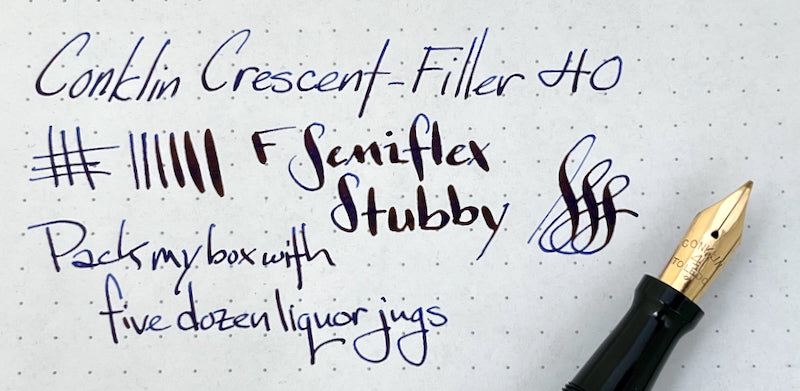 Conklin Crescent-Filler 40
F Semiflex
Stubby
Pack my box with
five dozen liquor jugs
CONKLIN
TOLEDO